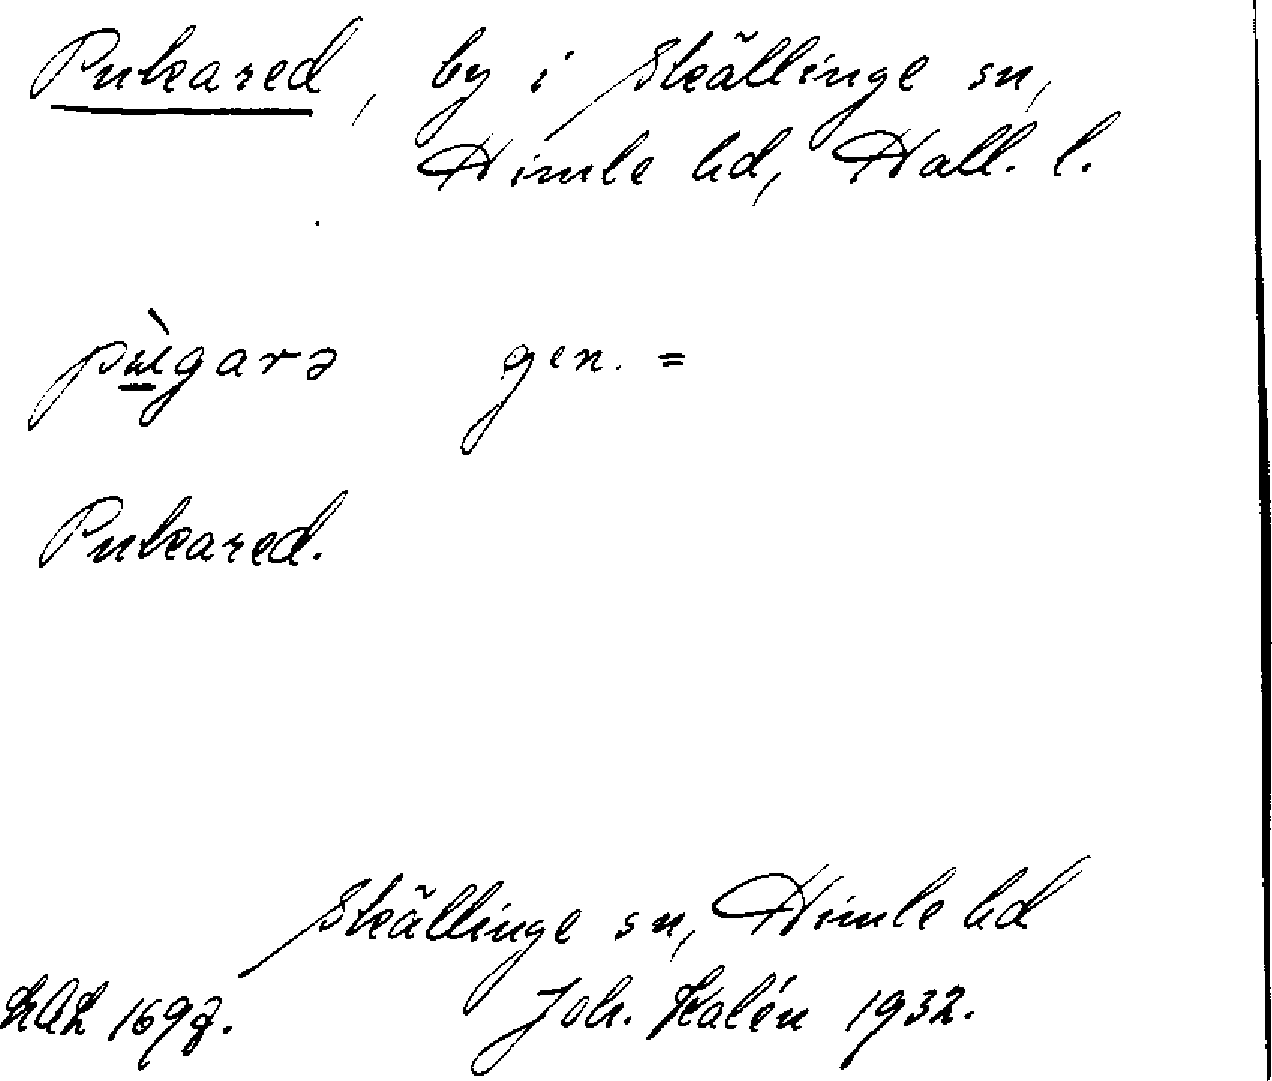 Pukared, by i Skällinge sn,
Himle hd, Hall. l.
pùgarə gen. =
Pukared.
Skällinge sn, Himle hd
Joh. Kalén 1932.